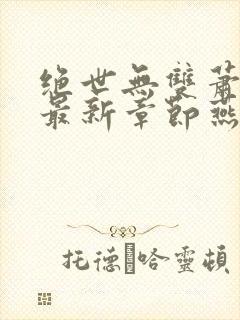 绝世無雙蕭
最新章節燕
托德·哈靈頓